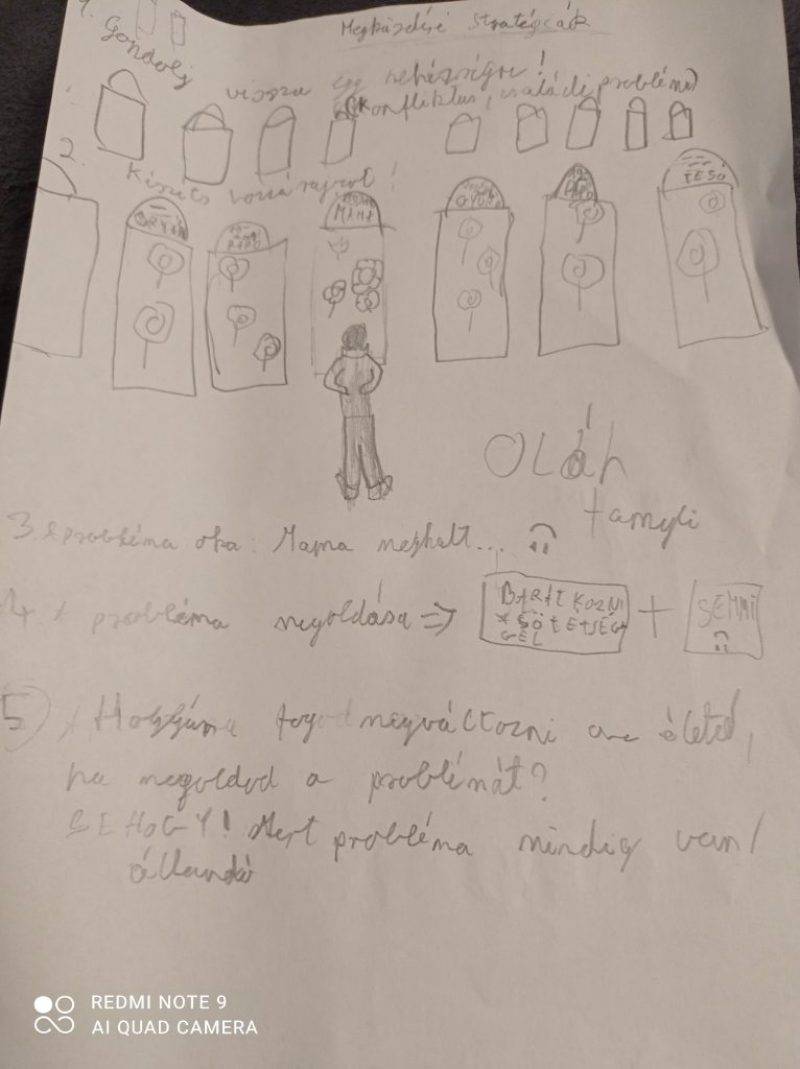 Megküzdési Stratégiák
1. Gondolj
vissza egy nehézségre!
(konfliktus, családi probléma)
2.
Készíts hozzá rajzot!
MAMA
TESÓ
OLáh
3. A probléma oka: Mama meghalt...
4. A probléma megoldása => BARÁTKOZNI + SEMMI
A SÖTETSÉG
GEL
5 Hogyan fog megváltozni az életed,
ha megoldod a problémát?
SEHOGY! Mert probléma mindig van/
állandó
REDMI NOTE 9
AI QUAD CAMERA